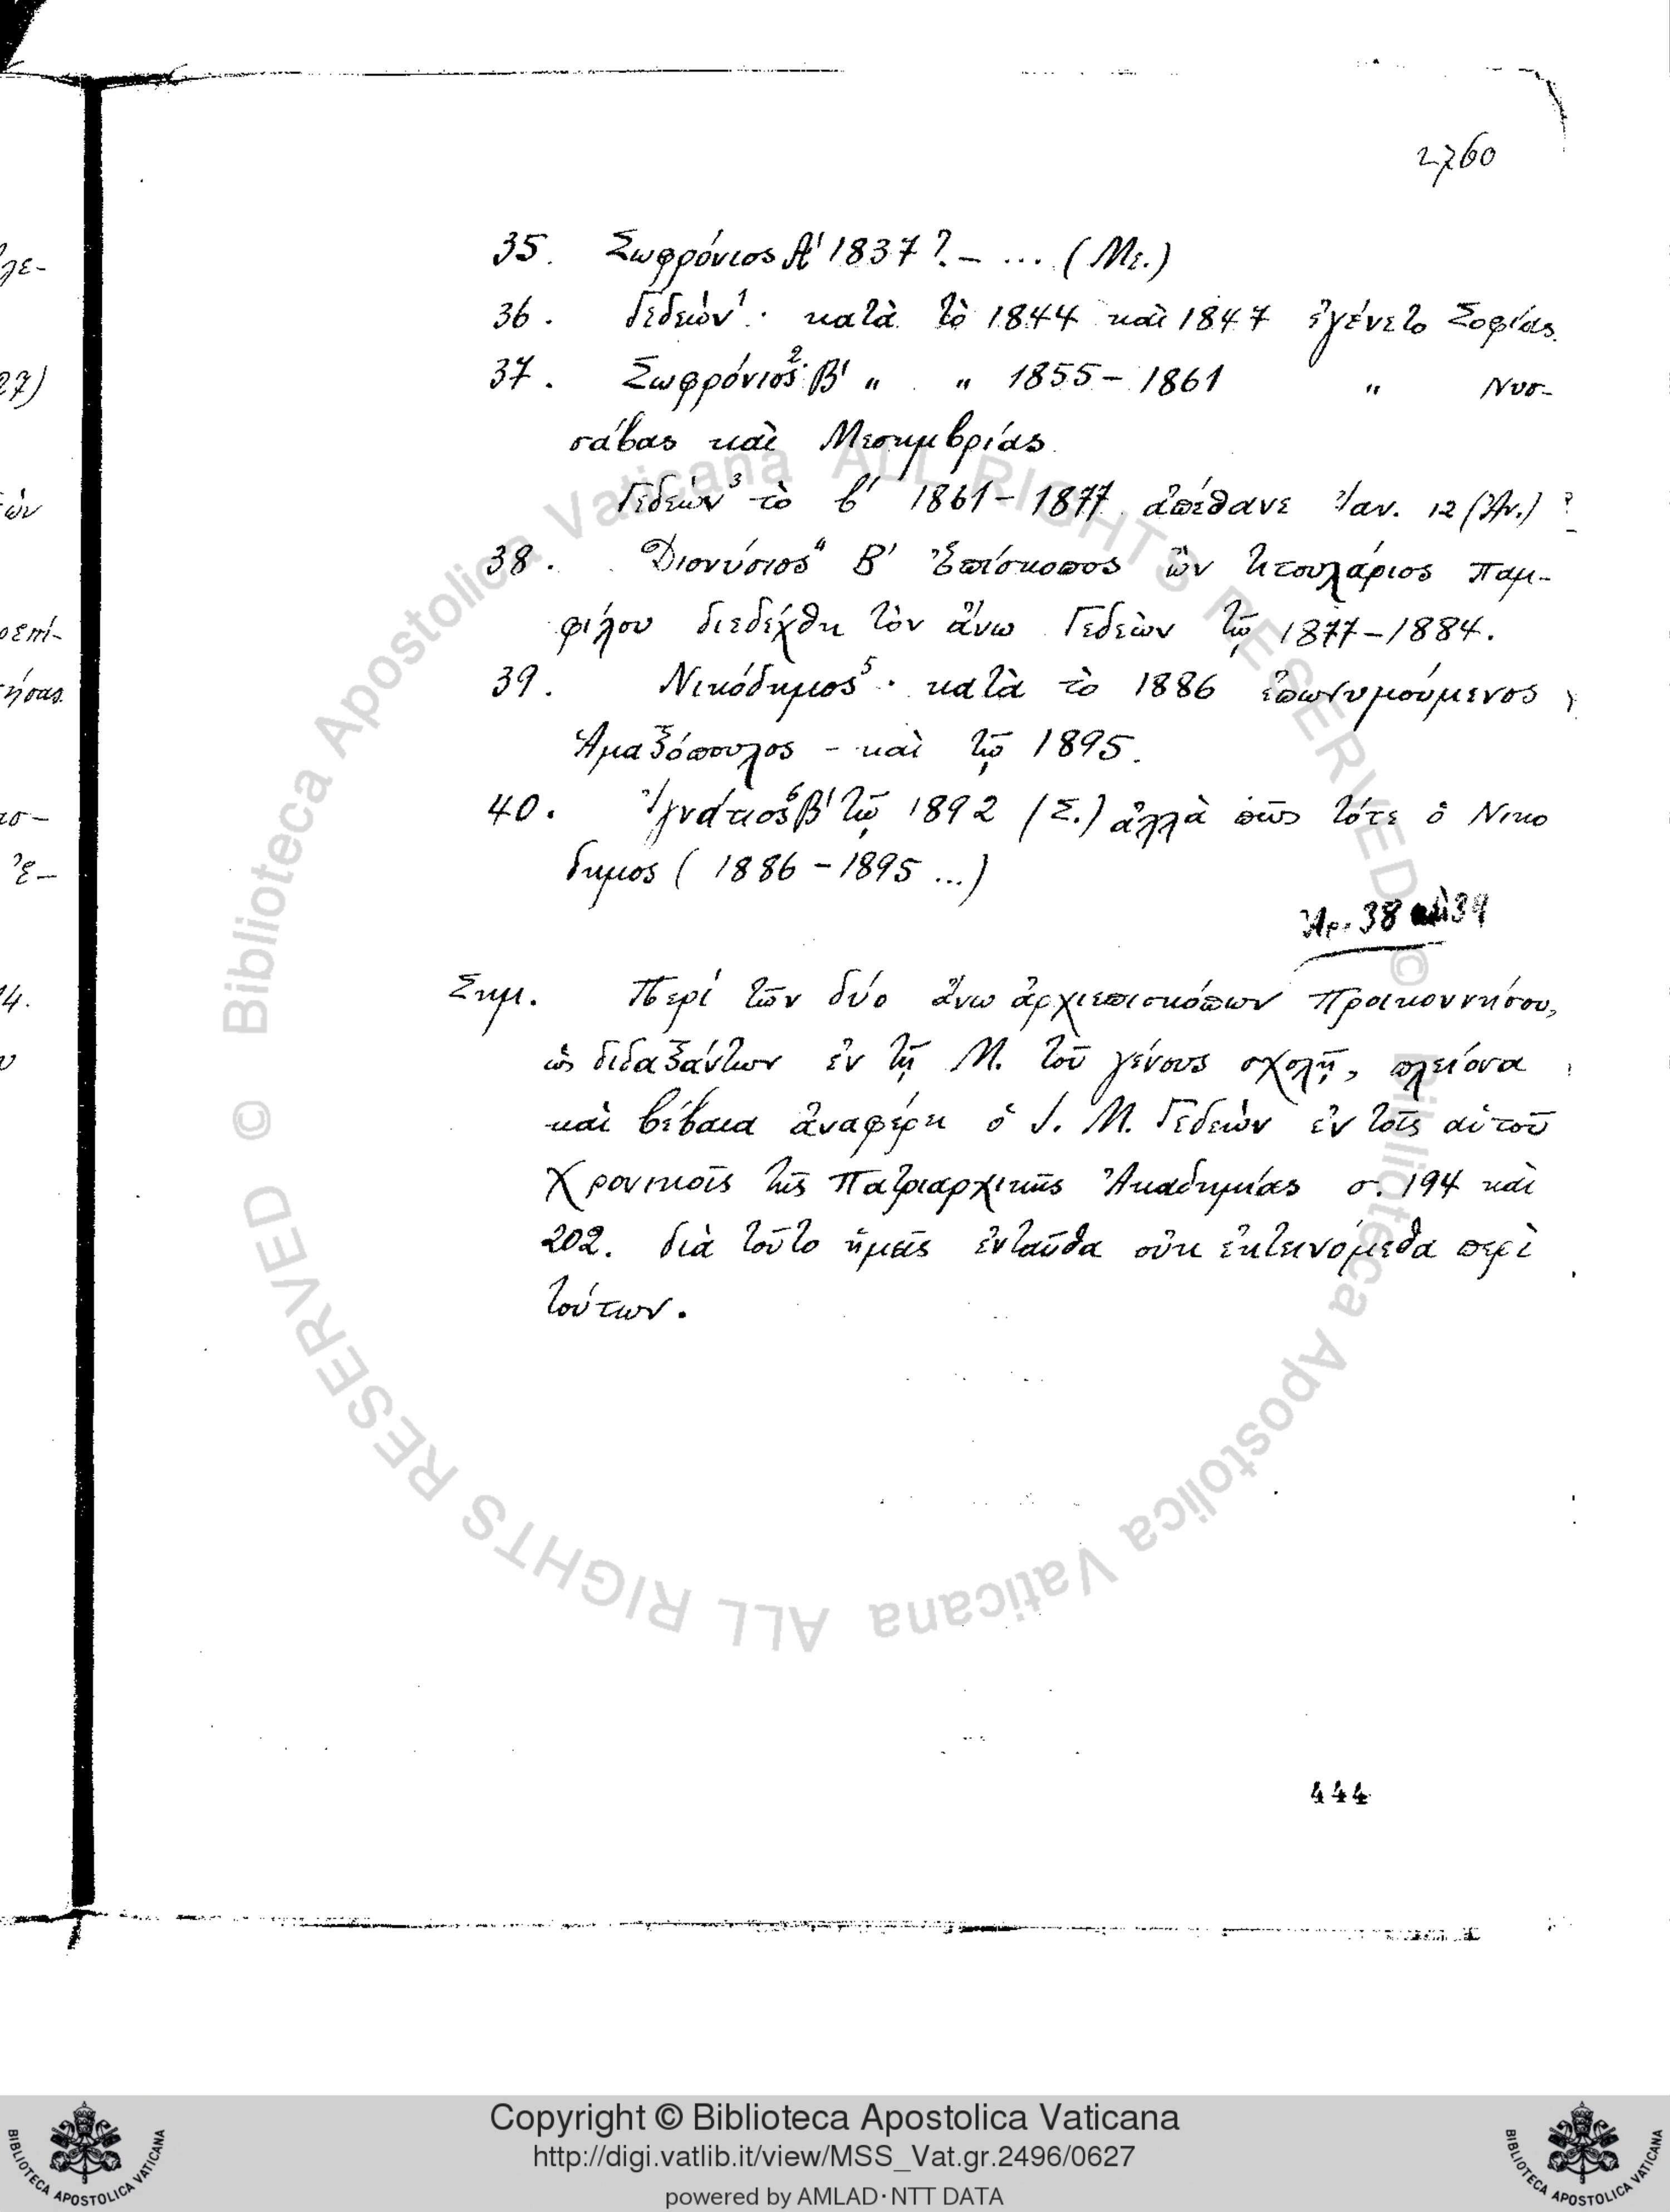 2760
35. Σωφρόνιος Α' 1837 ? – ... (Με.)
36. Γεδεών¹· κατὰ τὸ 1844 καὶ 1847 ἐγένετο Σοφίας.
37. Σωφρόνιος² Β' " " 1855 – 1861 " Νυσ-
σάβας καὶ Μεσημβρίας.
Γεδεών³ τὸ β' 1861 – 1877 ἀπέθανε Ἰαν. 12 (Ἀν.) ?
38. Διονύσιος⁴ Β' Ἐπίσκοπος ὢν τιτουλάριος Παμ-
φίλου διεδέχθη τὸν ἄνω Γεδεὼν τῷ 1877–1884.
39. Νικόδημος⁵· κατὰ τὸ 1886 ἐπωνυμούμενος
Ἁμαξόπουλος – καὶ τῷ 1895.
40. Ἰγνάτιος⁶ Β' τῷ 1892 (Σ.) ἀλλὰ πῶς τότε ὁ Νικο
δημος (1886 – 1895 ...)
Ἀρ. 38 καὶ 39
Σημ. Περὶ τῶν δύο ἄνω ἀρχιεπισκόπων Προικοννήσου,
ὡς διδαξάντων ἐν τῇ Μ. τοῦ γένους σχολῇ, πλείονα
καὶ βέβαια ἀναφέρει ὁ Ι. Μ. Γεδεὼν ἐν τοῖς αὐτοῦ
Χρονικοῖς τῆς Πατριαρχικῆς Ἀκαδημίας σ. 194 καὶ
202. διὰ τοῦτο ἡμεῖς ἐνταῦθα οὐκ ἐκτεινόμεθα περὶ
τούτων.
444
© Biblioteca Apostolica Vaticana ALL RIGHTS RESERVED
© Biblioteca Apostolica Vaticana ALL RIGHTS RESERVED
Copyright © Biblioteca Apostolica Vaticana
http://digi.vatlib.it/view/MSS_Vat.gr.2496/0627
powered by AMLAD·NTT DATA
BIBLIOTECA APOSTOLICA VATICANA
BIBLIOTECA APOSTOLICA VATICANA